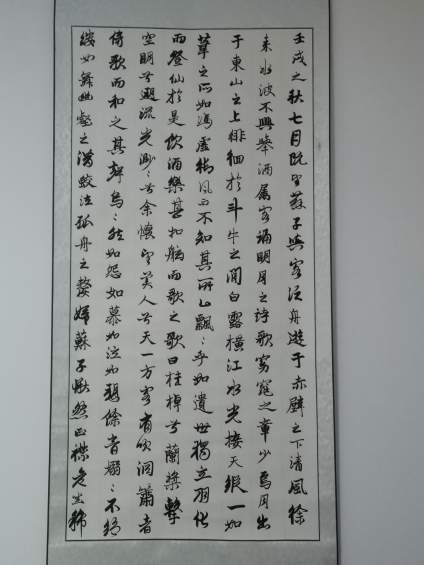 壬戌之秋七月既望蘇子與客泛舟遊于赤壁之下清風徐
來水波不興舉酒属客誦明月之詩歌窈窕之章少焉月出
于東山之上徘徊於斗牛之間白露橫江水光接天縱一如
葦之所如馮虛御風而不知其所以飄〻乎如遺世獨立羽化
而登仙於是飲酒樂甚扣舷而歌之歌曰桂棹兮蘭槳擊
空明兮溯流光渺〻兮余懷望美人兮天一方客有吹洞簫者
倚歌而和之其聲烏〻然如怨如慕如泣如訴餘音嫋〻不絕
縷如舞幽壑之潛蛟泣孤舟之嫠婦蘇子愀然正襟危坐